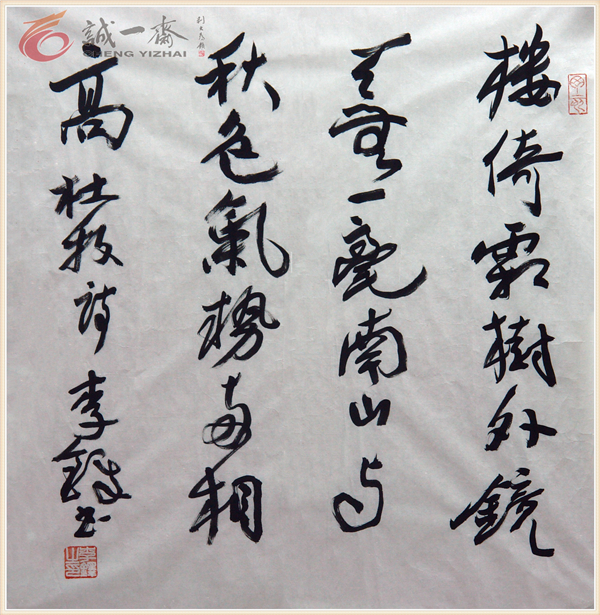 誠一齋
CHENG YIZHAI
樓倚霜樹外鏡
天無一毫南山与
秋色氣勢両相
高 杜牧詩 李鐸书